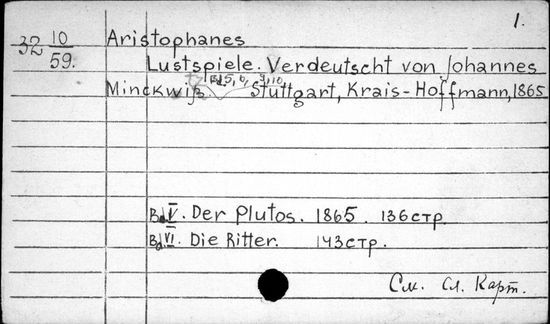 1.
32 10/59. Aristophanes
Lustspiele. Verdeutscht von Johannes
Bd 5, 6, 9, 10
Minckwitz Stuttgart, Krais-Hoffmann, 1865
Bd V. Der Plutos. 1865. 136 стр.
Bd VI. Die Ritter. 143 стр.
См. сл. карт.